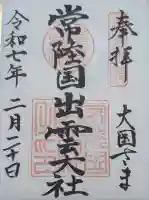 奉拝
大国さま
常陸国出雲大社
令和七年
二月二十日